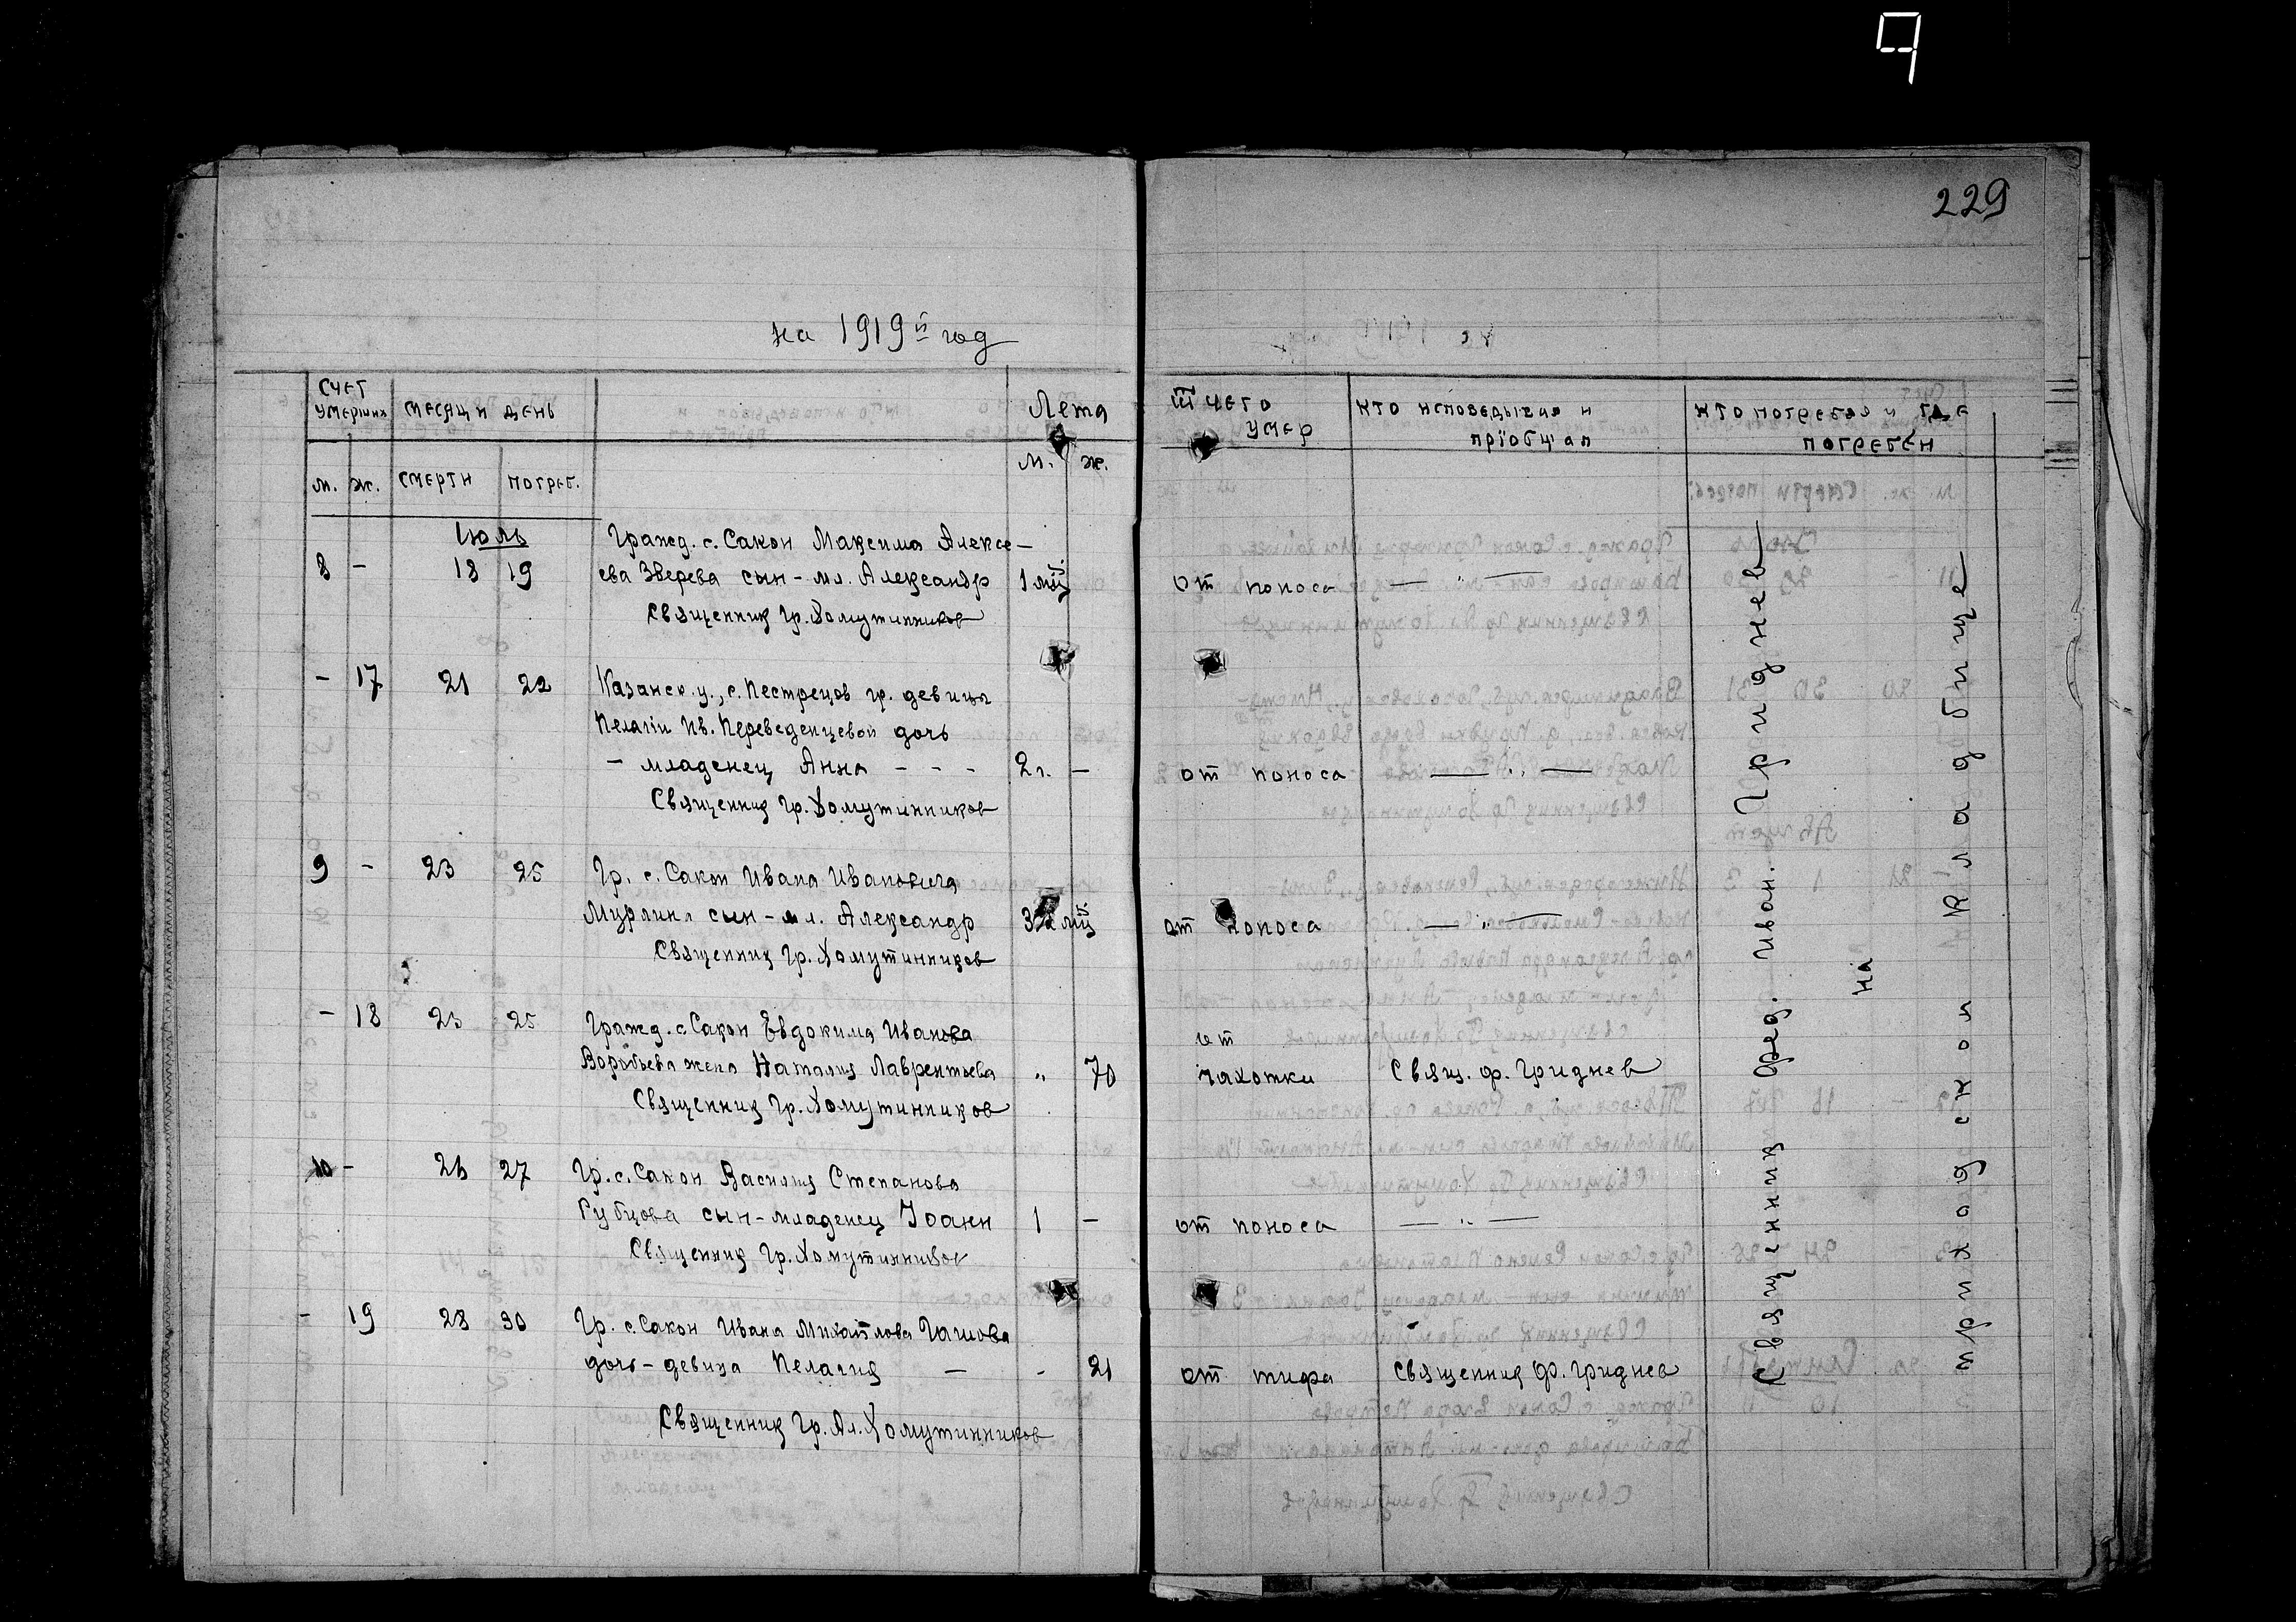 229
на 1919й год
Счет умерших
месяц и день
Лета
м. ж. смерти погреб. м. ж.
III чего умер
кто исповедывал и прiобщал
кто погребал и где погребен
Июль
Гражд. с. Сакон Максима Алексе-
8 - 18 19 ева Зверева сын - мл. Александр 1 мц. от поноса — " —
Священник Гр. Хомутинников
- 17 21 22 Казанск. у., с. Пестрецов гр. девицы
Пелагiи Ив. Переведенцевой дочь
- младенец Анна - - - 2 г. - от поноса — " —
Священник Гр. Хомутинников
9 - 23 25 Гр. с. Сакон Ивана Ивановича
сын - мл. Александр от поноса — " —
Священник Гр. Хомутинников
- 18 23 25 Гражд. с. Сакон Евдокима Иванова
Воробьева жена Наталия Лаврентьева " 70 от чахотки Свящ. Ф. Гриднев
Священник Гр. Хомутинников
10 - 26 27 Гр. с. Сакон Василия Степанова
Рубцова сын - младенец Iоанн 1 - от поноса — " —
Священник Гр. Хомутинников
- 19 28 30 Гр. с. Сакон Ивана Михайлова
дочь - девица Пелагия — - 21 от тифа Священник Ф. Гриднев
Священник Гр. Ал. Хомутинников
Священник Фед. Иван. Гриднев
на
приходском кладбище